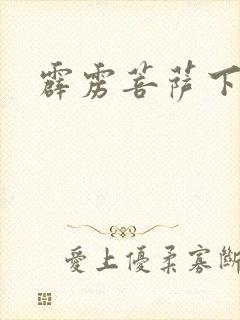 霹雳菩萨下
愛上優柔寡斷